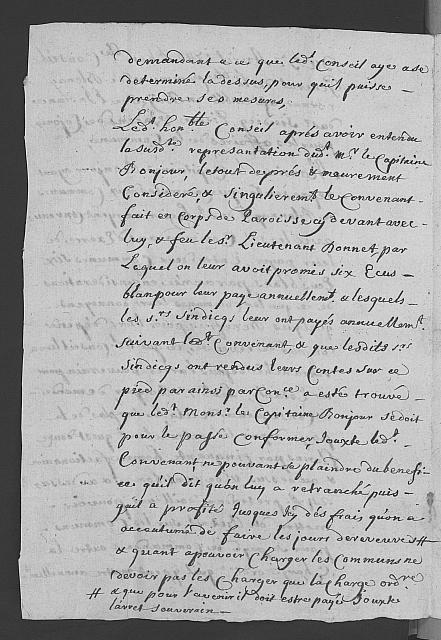 demandant a ce que led.t Conseil aye a se
determiné la dessus, pour quil puisse
prendre ses mesures,
Led.t hon.ble Conseil aprés avoir entendu
la susd.te representation dud.t M.r le Capitaine
Bonjour, le tout de prés & meurement
Consideré, & singulierem.t le Convenant
fait en Corps de Paroisse cy devant avec
luy, & feu le S.r Lieutenant Bonnet, par
Lequel on leur avoit promis six Ecus
blan pour leur paye annuellem.t, & lesquels
les S.rs Sindicqs leur ont payés annuellem.t
suivant led.t Convenant, & que lesdits S.rs
Sindicqs ont rendus leurs Contes sur ce
pied par ainsi par Con.ce a esté trouvé
que led.t Mons.r le Capitaine Bonjour se doit
pour le passé Conformer, Jouxte led.t
Convenant ne pouvant se plaindre du benefi-
ce qu'il dit qu'on luy a retranché puis
qu'il a profité Jusques Icy dés frais qu'on a
accoutumé de faire les jours de reveues #
& quant a pouvoir Charger les Communs ne
devoir pas les Charger que la Charge ord.re
# & que pour l'avenir il doit estre payé Jouxte
l'arret souverain